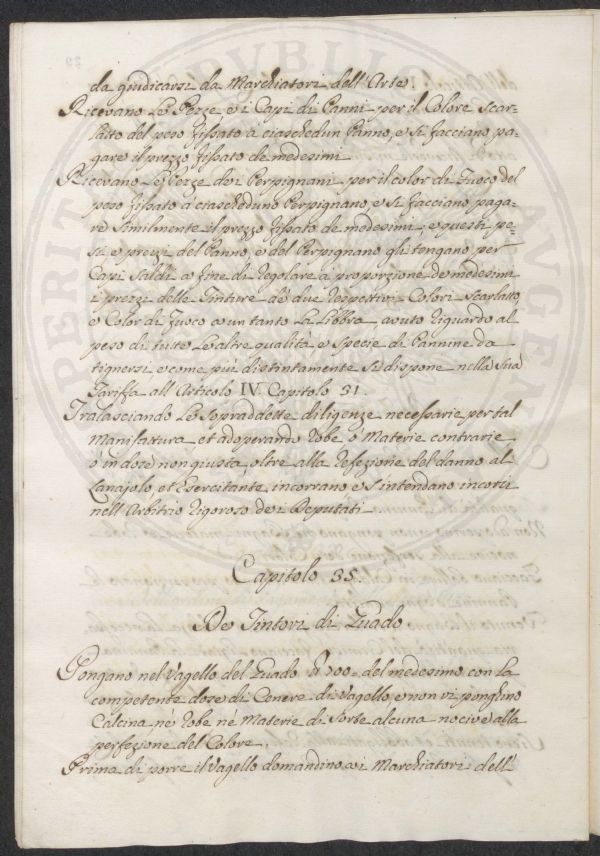 da giudicarsi da Marchiatori dell'Arte
Ricevano Le Pezze, e i Capi di Panni per il Colore Scar=
latto del peso fissato à ciaschedun Panno, e si facciano pa=
gare il prezzo fissato de medesimi
Ricevano Le Pezze dei Perpignani per il color di Fuoco del
peso fissato à ciascheduno Perpignano, e si facciano paga=
re similmente il prezzo fissato de medesimi, e questi pe=
si, e prezzi del Panno, e del Perpignano gli tengano per
Capi Saldi a fine di regolare à proporzione de medesimi
i prezzi delle Tinture de due respettivi Colori Scarlatto,
e Color di Fuoco a un tanto La Libbra avuto riguardo al
peso di tutte Le altre qualità, e specie di Pannine da
tignersi, e come più distintamente si dispone nella Sua
Tariffa all'Articolo IV. Capitolo 31.
Tralasciando Le Sopraddette diligenze necessarie per tal
Manifattura et adoperando robe, ò Materie contrarie,
ò in dose non giusta, oltre alla refezione del danno al
Lanajolo, et Esercitante, incorrano e s'intendano incorsi
nell'Arbitrio rigoroso dei Deputati
Capitolo 35.
De Tintori di Guado.
Pongano nel Vagello del Guado 700. del medesimo con la
competente dose di Cenere di Vagello, e non vi ponghino
Calcina, ne robe ne Materie di Sorte alcuna nocive alla
perfezione del Colore.
Prima di porre il Vagello domandino ai Marchiatori dell'
PERITI
PVBLIC
AVGENT